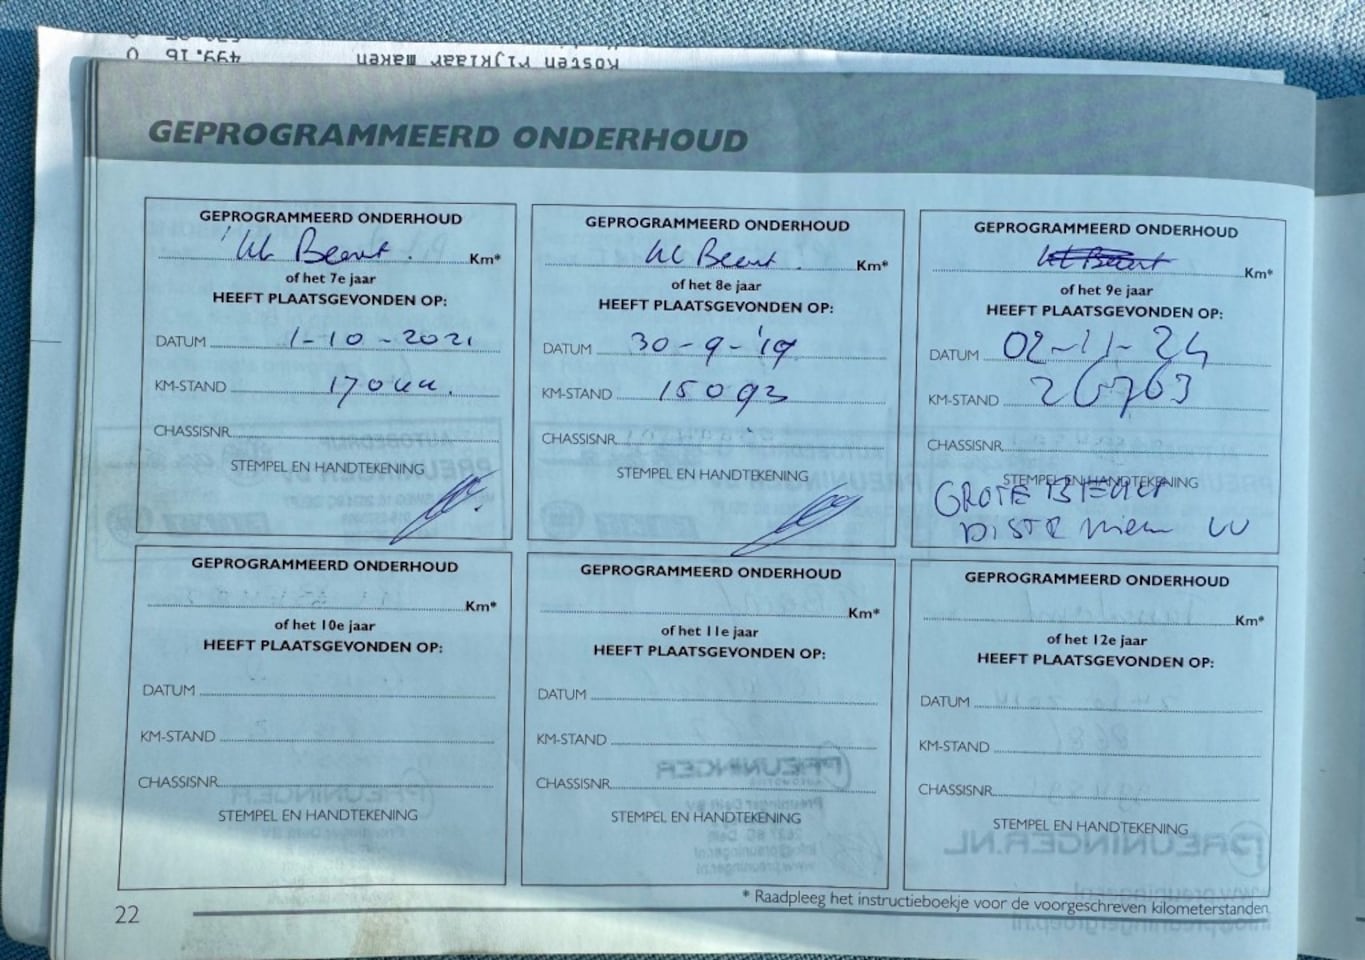 Kosten rijklaar maken 499.16 0
GEPROGRAMMEERD ONDERHOUD
GEPROGRAMMEERD ONDERHOUD
Kl Beurt. Km*
of het 7e jaar
HEEFT PLAATSGEVONDEN OP:
DATUM 1-10-2021
KM-STAND
CHASSISNR.
STEMPEL EN HANDTEKENING
GEPROGRAMMEERD ONDERHOUD
Kl Beurt. Km*
of het 8e jaar
HEEFT PLAATSGEVONDEN OP:
DATUM 30-9-'19
KM-STAND 15093
CHASSISNR.
STEMPEL EN HANDTEKENING
GEPROGRAMMEERD ONDERHOUD
Km*
of het 9e jaar
HEEFT PLAATSGEVONDEN OP:
DATUM 02-11-24
KM-STAND 26763
CHASSISNR.
STEMPEL EN HANDTEKENING
GROTE BEURT
DISTR
GEPROGRAMMEERD ONDERHOUD
Km*
of het 10e jaar
HEEFT PLAATSGEVONDEN OP:
DATUM
KM-STAND
CHASSISNR.
STEMPEL EN HANDTEKENING
GEPROGRAMMEERD ONDERHOUD
Km*
of het 11e jaar
HEEFT PLAATSGEVONDEN OP:
DATUM
KM-STAND
CHASSISNR.
STEMPEL EN HANDTEKENING
GEPROGRAMMEERD ONDERHOUD
Km*
of het 12e jaar
HEEFT PLAATSGEVONDEN OP:
DATUM
KM-STAND
CHASSISNR.
STEMPEL EN HANDTEKENING
* Raadpleeg het instructieboekje voor de voorgeschreven kilometerstanden
22